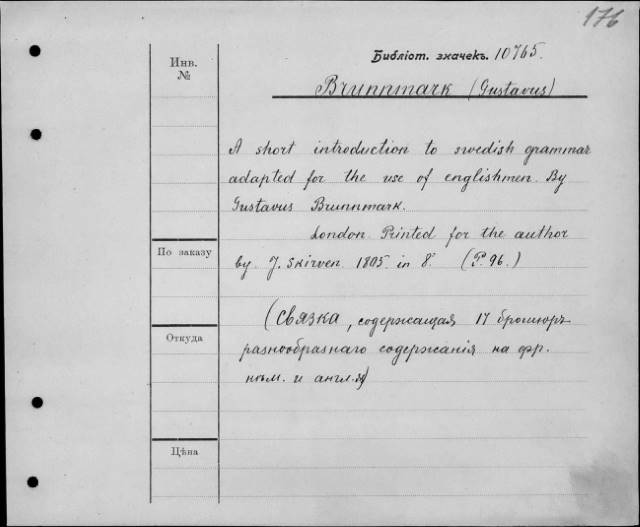 176
Библіот. значекъ. 10765.
Инв.
№
Brunnmark (Gustavus)
A short introduction to swedish grammar
adapted for the use of englishmen. By
Gustavus Brunnmark.
London. Printed for the author
По заказу
by J. Skirven. 1805. in 8°. (P. 96.)
(Связка, содержащая 17 брошюръ
Откуда
разнообразнаго содержанія на фр.
нѣм. и англ. яз)
Цѣна